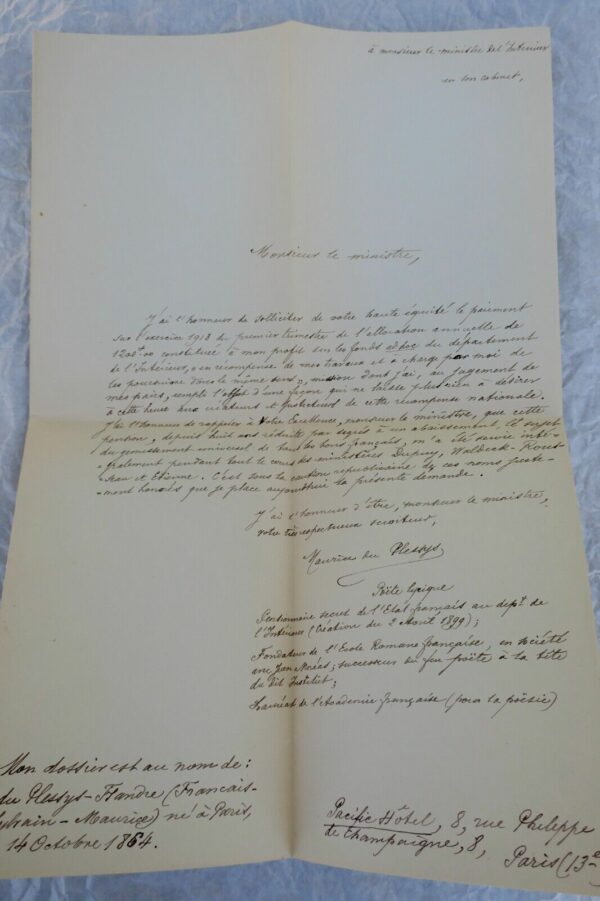 à monsieur le ministre de l'Intérieur
en son cabinet,
Monsieur le ministre,
J'ai l'honneur de solliciter de votre haute équité le paiement
sur l'exercice 1913 du premier trimestre de l'allocation annuelle de
1200 constituée à mon profit sur les fonds ad hoc du département
de l'Intérieur, « en récompense de mes travaux et à charge par moi de
les poursuivre dans le même sens », mission dont j'ai, au jugement de
mes pairs, rempli l'objet d'une façon qui ne laisse plus rien à désirer
à cette heure aux créateurs et de cette récompense nationale.
J'ai l'honneur de rappeler à Votre Excellence, monsieur le ministre, que cette
pension, depuis huit ans réduite par degrés à un abaissement, le sujet
du gémissement universel de tous les bons français, m'a été servie inté-
-gralement pendant tout le cours des ministères Dupuy, Waldeck-Rous-
-seau et Etienne. C'est sous la caution républicaine de ces noms juste-
-ment honorés que je place aujourd'hui la présente demande.
J'ai l'honneur d'être, monsieur le ministre,
votre très respectueux serviteur,
Maurice du Plessys
Poëte lyrique
Pensionnaire secret de l'Etat français au dépt. de
l'Intérieur (Création du 2 Aout 1899);
Fondateur de l'Ecole Romane française, en société
avec Jean Moréas; successeur du feu poëte à la tête
du dit Institut;
Lauréat de l'Académie française (pour la poësie)
Mon dossier est au nom de:
du Plessys-Flandre (Francois-
Sylvain-Maurice) né à Paris,
14 Octobre 1864.
Pacific Hôtel, 8, rue Philippe
de Champaigne, 8,
Paris (13e